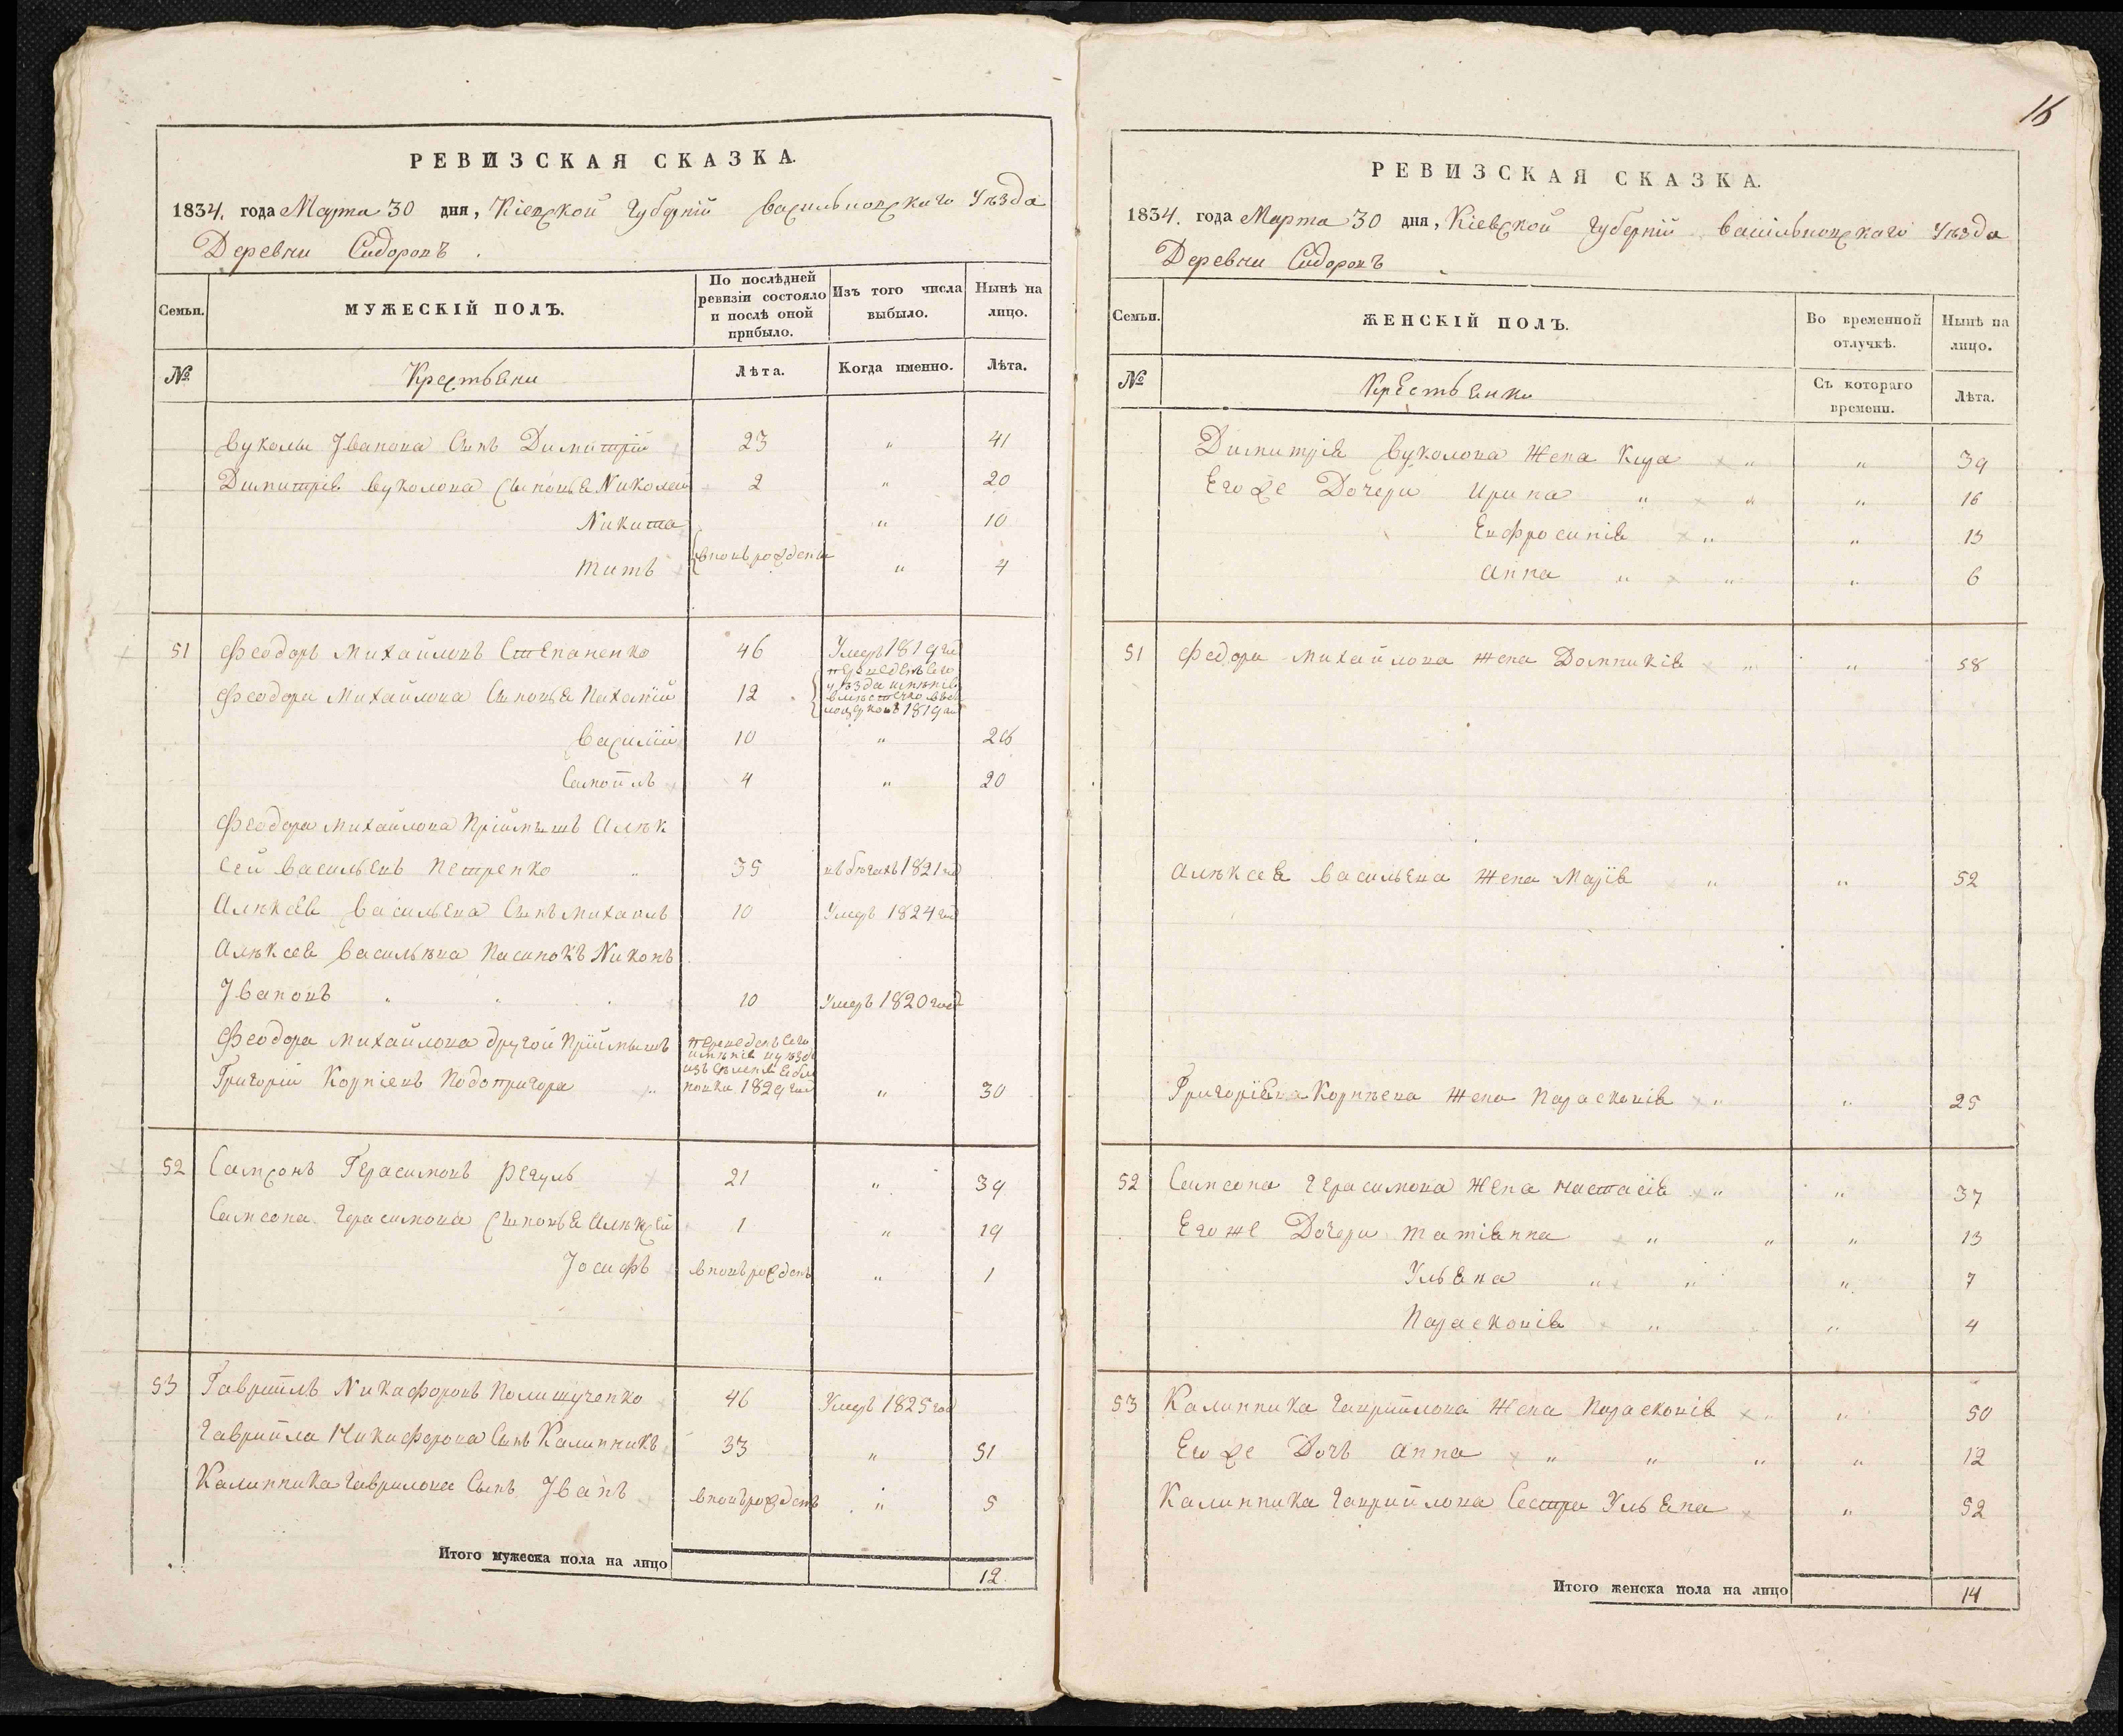 РЕВИЗСКАЯ СКАЗКА.
1834. года Марта 30 дня, Кіевской Губерніи Васильковскаго Уѣзда
Деревни Сидоровъ.
Семьи.
МУЖЕСКІЙ ПОЛЪ.
По послѣдней ревизіи состояло и послѣ оной прибыло.
Изъ того числа выбыло.
Нынѣ на лицо.
№
Крестьяни
Лѣта.
Когда именно.
Лѣта.
Вуколы Іванова Сынъ Димитрій 23 " 41
Димитрія Вуколова Сыновья Николай 2 " 20
Никита " 10
вновьрожденн
Титъ " 4
51 Феодоръ Михайловъ Степаненко 46 Умеръ 1819 год
Феодора Михайлова Сыновья Пахатій 12 1819
Василій 10 " 28
Самойлъ 4 " 20
Феодора Михайлова Пріймышъ Алѣк
сей Васильевъ Петренко " 35 въ бѣгахъ 1821 год
Алѣксѣя Васильева Сынъ Михаилъ 10 Умеръ 1824 год
Алѣксея Васильѣва Пасинокъ Никонъ
Івановъ 10 Умеръ 1820 год
Феодора Михайлова другой Пріймышъ
Григорій Корніевъ Подопригора 1829 год " 30
52 Самсонъ Герасимовъ Регуль 21 " 39
Самсона Герасимова Сыновья Алѣксей 1 " 19
Іосифъ вновьрожденъ " 1
53 Гаврійлъ Никифоровъ Полищученко 46 Умеръ 1825 год
Гаврийла Никифорова Сынъ Калинникъ 33 " 51
Калинника Гаврилова Сынъ Іванъ вновьрожденъ " 5
Итого мужеска пола на лицо 12.
16
РЕВИЗСКАЯ СКАЗКА.
1834. года Марта 30 дня, Кіевской Губерній Васильковскаго Уѣзда
Деревни Сидоровъ
Семьи.
ЖЕНСКІЙ ПОЛЪ.
Во временной отлучкѣ.
Нынѣ на лицо.
№
Крестьянки
Съ котораго времени.
Лѣта.
Димитрія Вуколова Жена Кира " " 39
Егоже Дочери Ирина " " " 16
Евфросинія " " 13
Анна " " " 6
51 Федора Михайлова Жена Домникія " " 58
Алѣксея Васильева Жена Марія " " 52
Григорія Корнѣева Жена Параскевія " " 25
52 Самсона Герасимова Жена Настасія " " 37
Егоже Дочери Татіянна " " " 13
Ульяна " " " 7
Параскевія " " 4
53 Калинника Гаврийлова Жена Параскевія " " 50
Егоже Дочь Анна " " " " 12
Калинника Гаврийлова Сестра Ульяна " 52
Итого женска пола на лицо 14